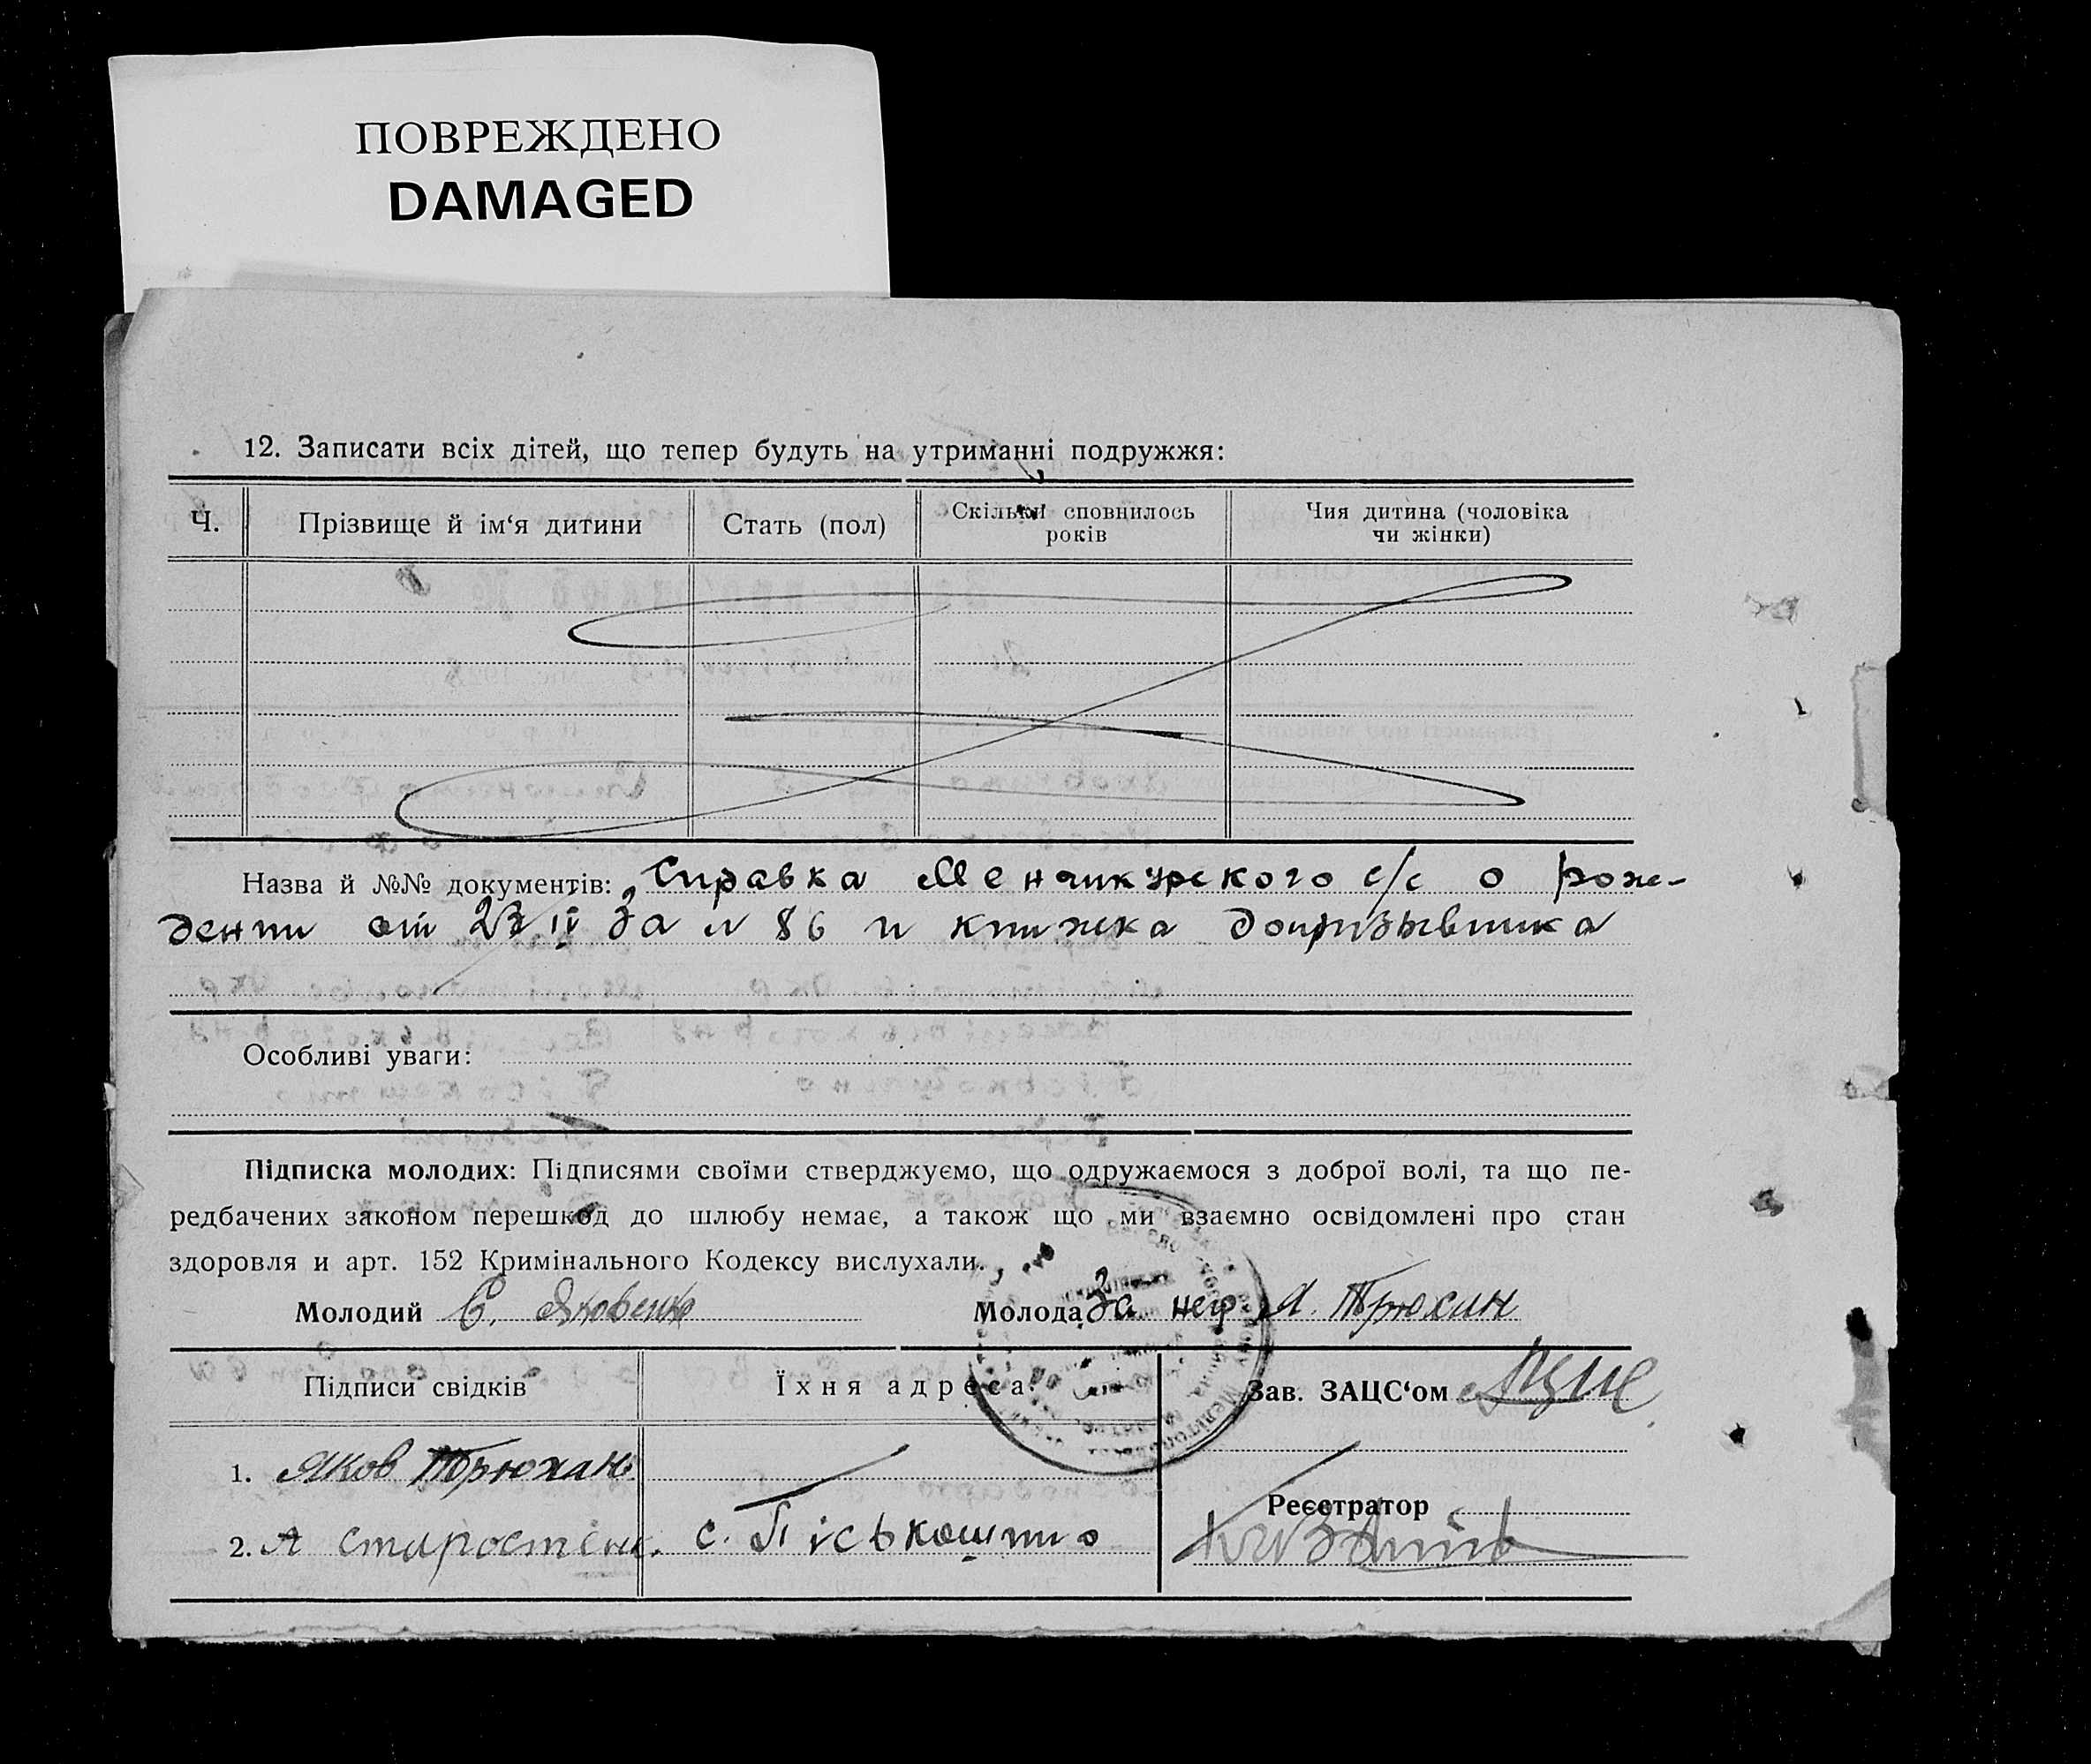 ПОВРЕЖДЕНО
DAMAGED
12. Записати всіх дітей, що тепер будуть на утриманні подружжя:
Ч. Прізвище й ім‘я дитини Стать (пол) Скільки сповнилось років Чия дитина (чоловіка чи жінки)
Назва й №№ документів: Справка Менчикурского с/с о рож-
дении от 23 IV за № 86 и книжка допризывника
Особливі уваги:
Підписка молодих: Підписями своїми стверджуємо, що одружаємося з доброї волі, та що пе-
редбачених законом перешкод до шлюбу немає, а також що ми взаємно освідомлені про стан
здоровля и арт. 152 Кримінального Кодексу вислухали.
Молодий Є. Яковенко Молода За негр. Я. Трюхан
Підписи свідків Їхня адреса: Зав. ЗАЦС‘ом
1. Яков Трюхан
Реєстратор
2. А Старостенк. с. Піськошино